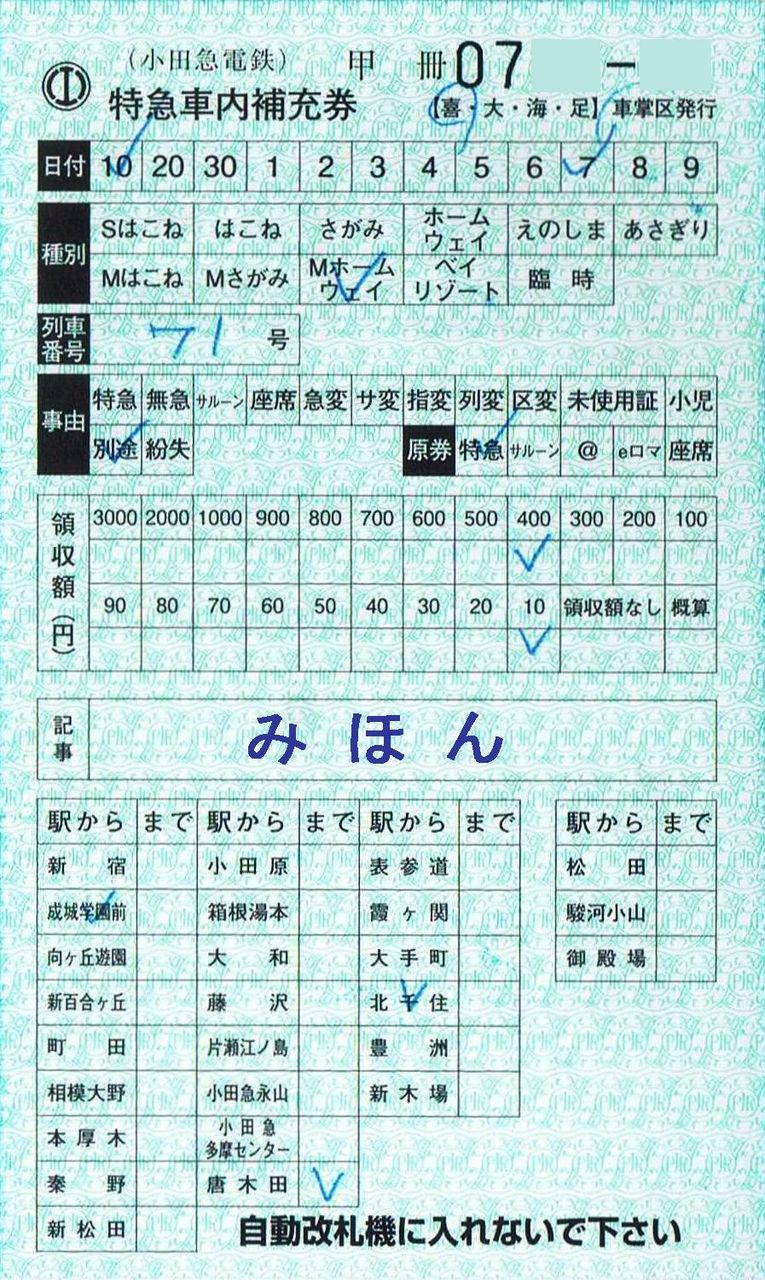 (小田急電鉄) 甲 冊 07 ー
特急車内補充券 【喜・大・海・足】車掌区発行
日付 10 20 30 1 2 3 4 5 6 7 8 9
種別 Sはこね はこね さがみ ホームウェイ えのしま あさぎり
Mはこね Mさがみ Mホームウェイ ベイリゾート 臨時
列車番号 71 号
事由 特急 無急 サルーン 座席 急変 サ変 指変 列変 区変 未使用証 小児
別途 紛失 原券 特急 サルーン @ eロマ 座席
領収額(円) 3000 2000 1000 900 800 700 600 500 400 300 200 100
90 80 70 60 50 40 30 20 10 領収額なし 概算
記事 みほん
駅から まで 駅から まで 駅から まで 駅から まで
新宿 小田原 表参道 松田
成城学園前 箱根湯本 霞ヶ関 駿河小山
向ヶ丘遊園 大和 大手町 御殿場
新百合ヶ丘 藤沢 北千住
町田 片瀬江ノ島 豊洲
相模大野 小田急永山 新木場
本厚木 小田急多摩センター
秦野 唐木田
新松田
自動改札機に入れないで下さい